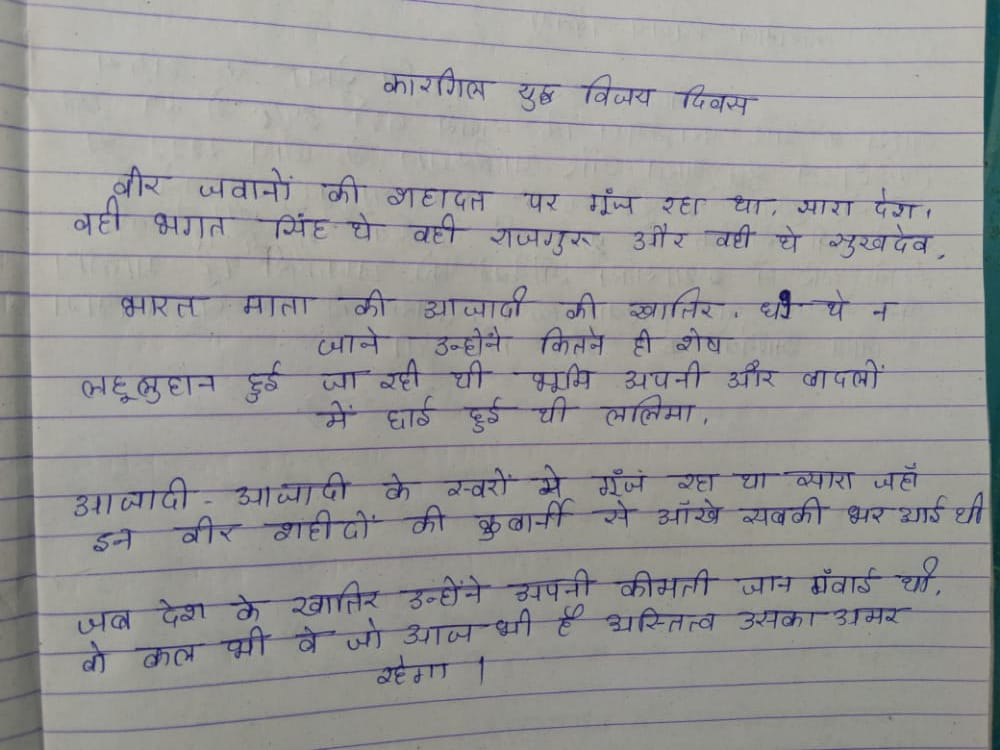 कारगिल युद्ध विजय दिवस
वीर जवानों की शहादत पर गूँज रहा था, सारा देश,
वही भगत सिंह थे वही राजगुरू और वही थे सुखदेव,
भारत माता की आजादी की खातिर, थे न
जाने उन्होंने कितने ही शेष
लहूलुहान हुई जा रही थी भूमि अपनी और बादलों
में छाई हुई थी ललिमा,
आजादी - आजादी के स्वरों मे गूँजं रहा था सारा जहाँ
इन वीर शहीदों की कुबार्नी से आँखे सबकी भर आई थी
जब देश के खातिर उन्होंने अपनी कीमती जान गँवाई थी,
वो कल भी वे जो आज भी है अस्तित्व उसका अमर
रहेगा ।